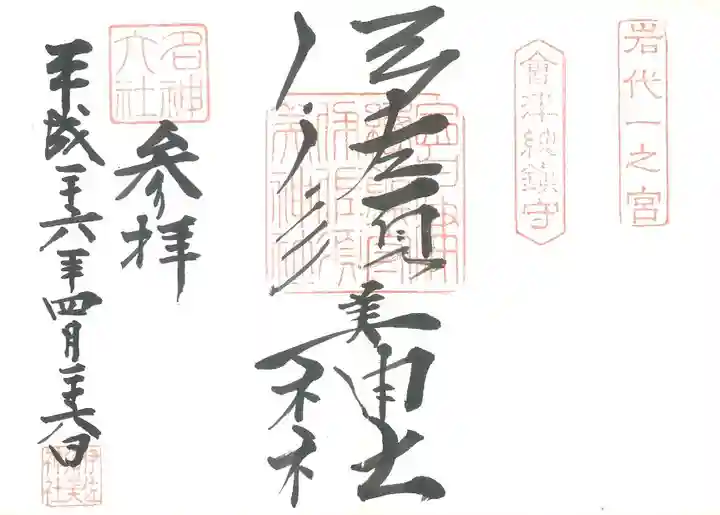 岩代一之宮
會津總鎮守
伊佐須美神社
名神大社
参拝
平成二十六年四月二十六日
伊佐須美神社